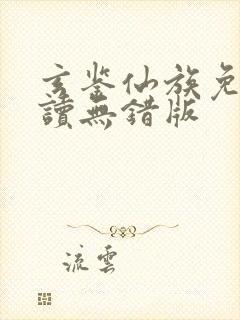 玄鉴仙族免
讀無錯版
流雲